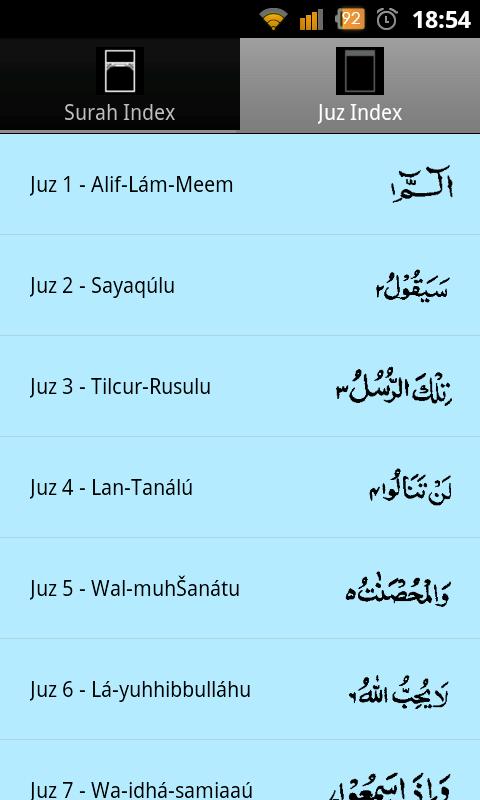 92 18:54
Surah Index Juz Index
Juz 1 - Alif-Lám-Meem الٓـمّٓ ١
Juz 2 - Sayaqúlu سَيَقُوْلُ ٢
Juz 3 - Tilcur-Rusulu تِلْكَ الرُّسُلُ ٣
Juz 4 - Lan-Tanálú لَنْ تَنَالُوا ۴
Juz 5 - Wal-muhŠanátu وَالْمُحْصَنٰتُ ۵
Juz 6 - Lá-yuhhibbulláhu لَا يُحِبُّ اللّٰهُ ٦
Juz 7 - Wa-idhá-samiaaú وَاِذَا سَمِعُوْا ٧